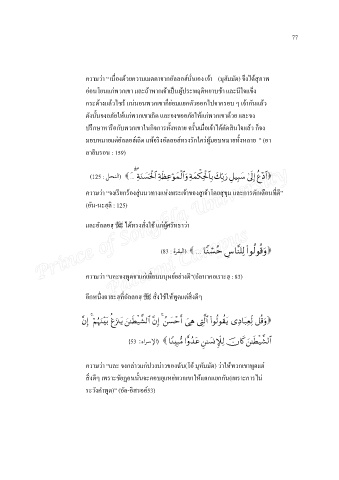 77
ความว่า “เนื่องด้วยความเมตตาจากอัลลอฮ์นั่นเอง เจ้า (มุฮัมมัด) จึงได้สุภาพ
อ่อนโยนแก่พวกเขา และถ้าหากเจ้าเป็นผู้ประพฤติหยาบช้า และมีใจแข็ง
กระด้างแล้วไซร้ แน่นอนพวกเขาก็ย่อมแยกตัวออกไปจากรอบ ๆ เจ้ากันแล้ว
ดังนั้นจงอภัยให้แก่พวกเขาเถิด และจงขออภัยให้แก่พวกเขาด้วย และจง
ปรึกษาหารือกับพวกเขาในกิจการทั้งหลาย ครั้นเมื่อเจ้าได้ตัดสินใจแล้ว ก็จง
มอบหมายแด่อัลลอฮ์เถิด แท้จริงอัลลอฮ์ทรงรักใคร่ผู้มอบหมายทั้งหลาย ” (อา
ลาอิมรอน : 159)
﴿ٱدْعُ إِلَىٰ سَبِيلِ رَبِّكَ بِٱلْحِكْمَةِ وَٱلْمَوْعِظَةِ ٱلْحَسَنَةِ ۖ﴾ (النحل : 125)
ความว่า “จงเรียกร้องสู่แนวทางแห่งพระเจ้าของสูเจ้าโดยสุขุม และการตักเตือนที่ดี”
(อัน-นะฮฺลิ : 125)
และอัลลอฮฺ ﷻ ได้ทรงสั่งใช้ แก่ผู้ศรัทธาว่า
﴿وَقُولُوا۟ لِلنَّاسِ حُسْنًا ... ﴾ (البقرة : 83)
ความว่า “และจงพูดจาแก่เพื่อนมนุษย์อย่างดี”(อัลบากอเราะฮฺ : 83)
คือหนึ่งดาอะฮฺที่อัลลอฮฺ ﷻ สั่งใช้ให้พูดแต่สิ่งดีๆ
﴿وَقُل لِّعِبَادِى يَقُولُوا۟ ٱلَّتِى هِىَ أَحْسَنُ ۚ إِنَّ ٱلشَّيْطَـٰنَ يَنزَغُ بَيْنَهُمْ ۚ إِنَّ
ٱلشَّيْطَـٰنَ كَانَ لِلْإِنسَـٰنِ عَدُوًّا مُّبِينًا﴾ (الإسراء: 53)
ความว่า “และ จงกล่าวแก่ปวงบ่าวของฉัน(โอ้ มุฮัมมัด) ว่าให้พวกเขาพูดแต่
สิ่งดีๆ เพราะชัยฏอนนั้นจะคอยยุแหย่พวกเขาให้แตกแยกกัน(เพราะการไม่
ระวังคำพูด)” (อัล-อิสรออ์53)